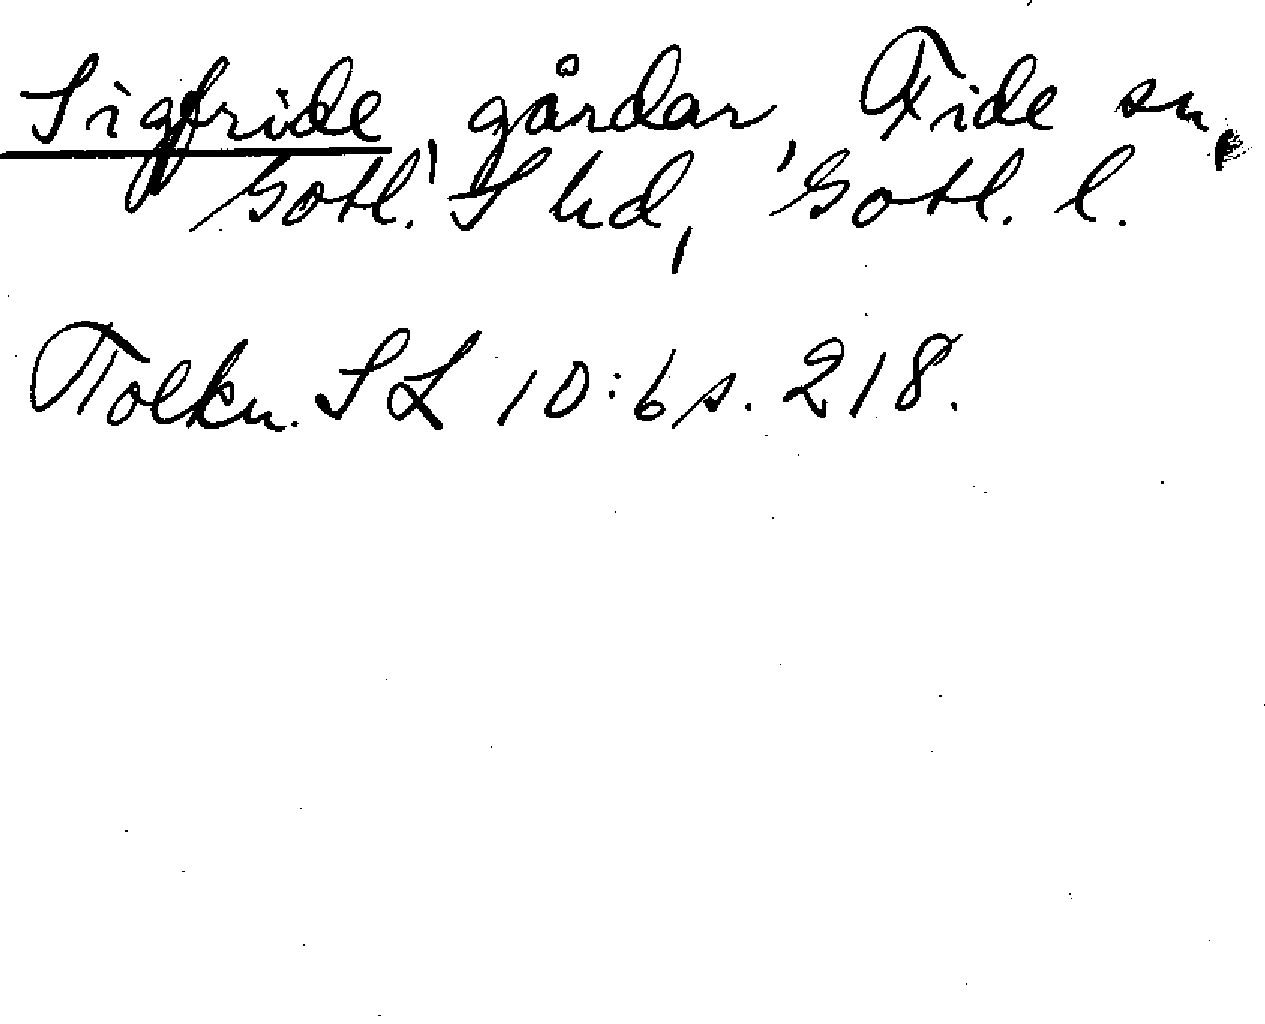 Sigfride, gårdar, Fide sn,
Gotl. S hd, Gotl. l.
Tolkn. SL 10:6 s. 218.